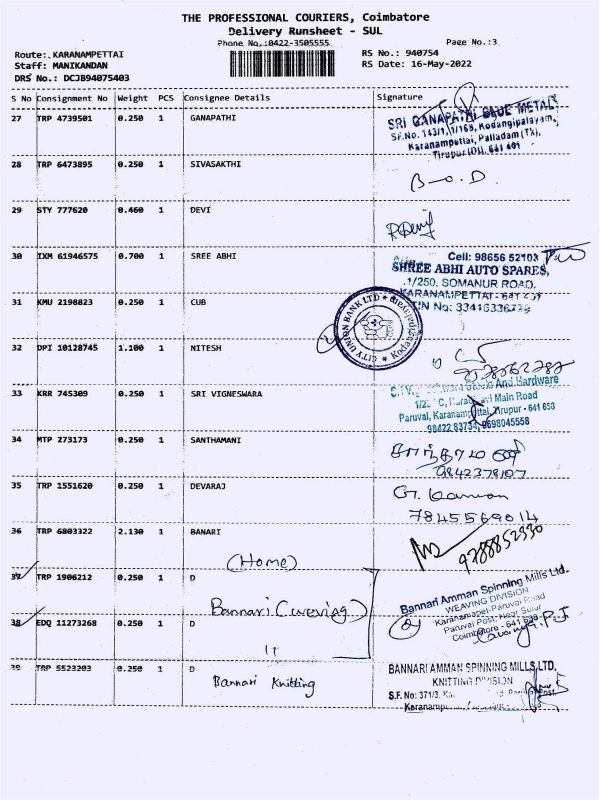 THE PROFESSIONAL COURIERS, Coimbatore
Delivery Runsheet - SUL
Phone No.:0422-3505555
Page No.:3
Route: KARANAMPETTAI
Staff: MANIKANDAN
DRS No.: DCJB94075403
RS No.: 940754
RS Date: 16-May-2022
S No Consignment No Weight PCS Consignee Details Signature
27 TRP 4739501 0.250 1 GANAPATHI
SRI GANAPATHI BLUE METAL
SF.No. 143/1, 1/169, Kodangipalayam,
Karanampettai, Palladam (TK),
Tirupur (Dt). 641 401
28 TRP 6473895 0.250 1 SIVASAKTHI
B-O.D
29 STY 777620 0.460 1 DEVI
R Devi
30 IXM 61946575 0.700 1 SREE ABHI
Cell: 98656 52103
SHREE ABHI AUTO SPARES,
1/250, SOMANUR ROAD,
KARANAMPETTAI
31 KMU 2198823 0.250 1 CUB
CITY UNION BANK LTD
32 DPI 10128745 1.100 1 NITESH
33 KRR 745309 0.250 1 SRI VIGNESWARA
And Hardware
Main Road
Paruvai, Tirupur - 641 658
98422 83734, 9698045558
34 MTP 273173 0.250 1 SANTHAMANI
சாந்தாமணி
9842378107
35 TRP 1551620 0.250 1 DEVARAJ
7845569014
36 TRP 6803322 2.130 1 BANARI
9788852330
(Home)
37 TRP 1906212 0.250 1 D
Bannari (weaving)
Bannari Amman Spinning Mills Ltd.
WEAVING DIVISION
Karanampet-Paruvai Road
Paruvai Post, Near Sulur
Coimbatore - 641
38 EDQ 11273268 0.250 1 D
11
39 TRP 5523203 0.250 1 D
Bannari Knitting
BANNARI AMMAN SPINNING MILLS LTD,
KNITTING DIVISION
S.F. No: 371/3,